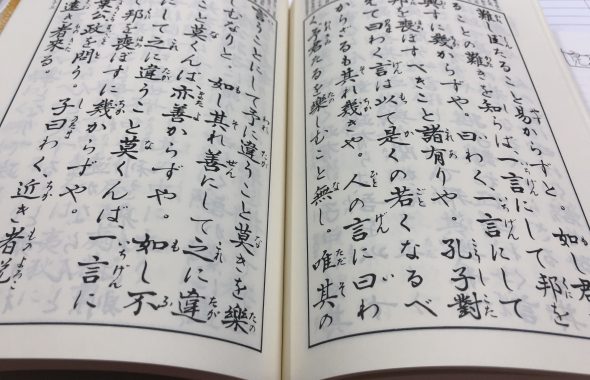 難し臣たること易からずと。如し君
ることの難きを知らば一言にして邦を
興すに幾からずや。曰わく、一言にして
邦を喪ぼすべきこと諸有りや。孔子對
えて曰わく言は以て是くの若くなるべ
からざるも其れ幾きや。人の言に曰わ
く予君たるを樂しむこと無し。唯其の
言うことにして予に違うこと莫きを樂
しむなりと。如し其れ善にして之に違
こと莫くんば亦善からずや。如し不
にして之に違うこと莫くんば、一言に
て邦を喪ぼすに幾からずや。
葉公政を問う。子曰わく、近き者説
遠き者來る。